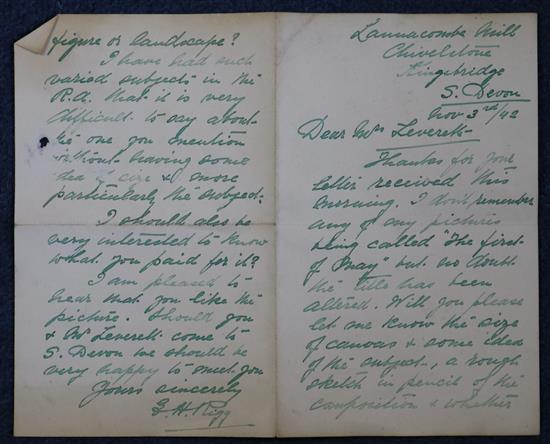 Lannacombe Mill
Chivelstone
Kingsbridge
S. Devon
Nov 3rd/42
Dear Mrs Leverett
Thanks for your
letter received this
morning. I don't remember
any of my pictures
being called "The first
of May" but no doubt
the title has been
altered. Will you please
let me know the size
of canvas & some idea
of the subject, a rough
sketch in pencil of the
composition & whether
figure or landscape?
I have had such
varied subjects in the
R.A. that it is very
difficult to say about
the one you mention
without having some
idea of size & more
particularly the subject.
I should also be
very interested to know
what you paid for it?
I am pleased to
hear that you like the
picture. Should you
& Mr Leverett come to
S. Devon we should be
very happy to meet you
Yours sincerely